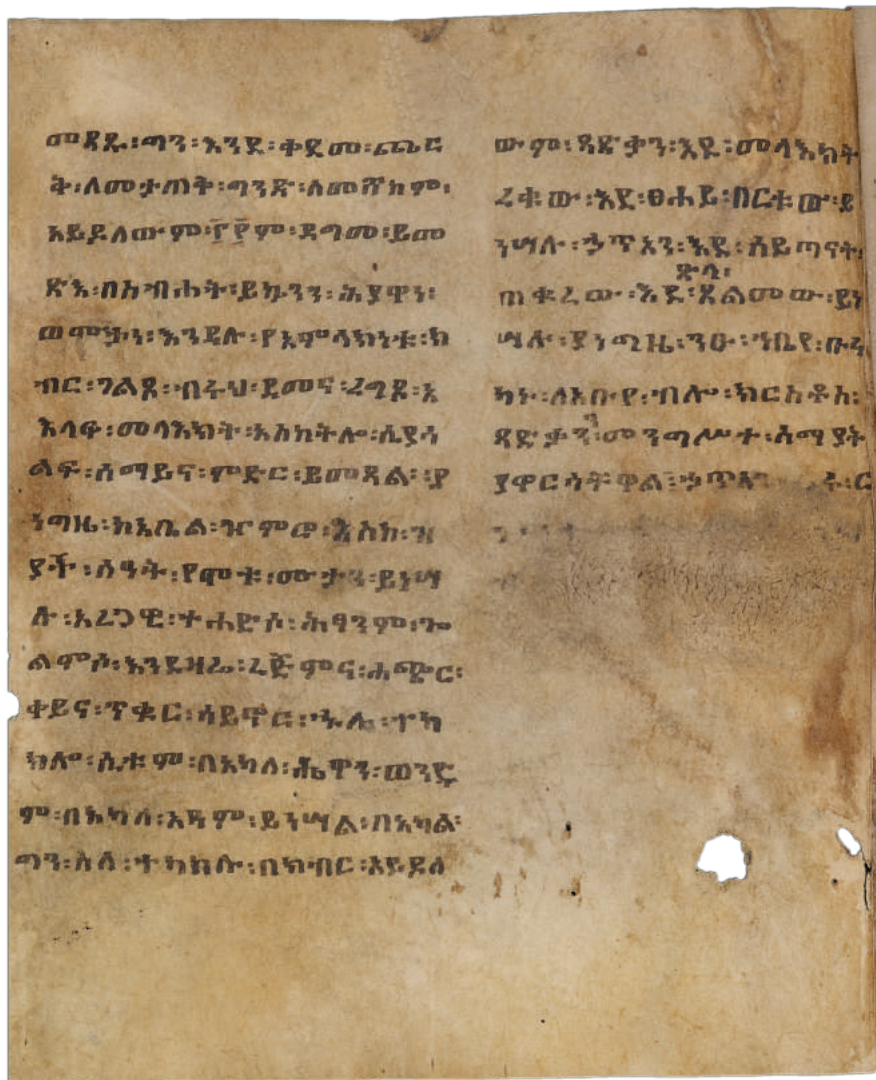 መጻጹ፡ግን፡እንደ፡ቀደመ፡ጨር
ቅ፡ለመታጠቅ፡ግንድ፡ለመሸከም፡
አይደለውም፡፲፪ም፡ዳግመ፡ይመ
ጽእ፡በስብሐት፡ይኴንን፡ሕያዋነ፡
ወሙታነ፡እንዳሉ፡የአምላክነቱ፡ክ
ብር፡ገልጾ፡ብሩህ፡ደመና፡ረግጾ፡አ
እላፍ፡መላእክት፡አስከትሎ፡ሲያሳ
ልፍ፡ሰማይና፡ምድር፡ይመጻል፡ያ
ነግዜ፡ከአቤል፡ዠምሮ፡እስከ፡ዝ
ያች፡ሰዓት፡የሞቱ፡ሙታን፡ይነሣ
ሉ፡አረጋዊ፡ተሐድሶ፡ሕፃንም፡ጐ
ልምሶ፡እንደዛፌ፡ረጅምና፡ሐጭር፡
ቀይና፡ጥቁር፡ሳይኖር፡ኁሉ፡ተካ
ክሎ፡ሴቱም፡በአካለ፡ሔዋን፡ወንድ
ም፡በአካለ፡አዳም፡ይንሣል፡በአካል፡
ግን፡ስለ፡ተካከሉ፡በክብር፡አይደለ
ውም፡ጻድቃን፡እደ፡መላእክት
ረቁው፡እደ፡ፀሐይ፡በርቱው፡ይ
ንሣሉ፡ኃጥአን፡እደ፡ሰይጣናት፡
ጽላ፡
ጠቁረው፡እደ፡ጸልመው፡ይነ
ሣሉ፡ያነጊዜ፡ንዑ፡ኀቤየ፡ቡሩ
ካኑ፡ለአቡየ፡ብሎ፡ክርስቶስ፡
ጻድቃንን፡መንግሥተ፡ሰማያት
ያዋርሳቸዋል፡ኃጥአን